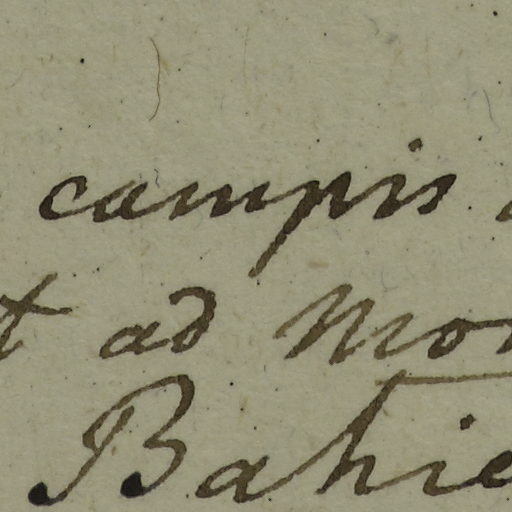 campis
t ad Mon
Bahie